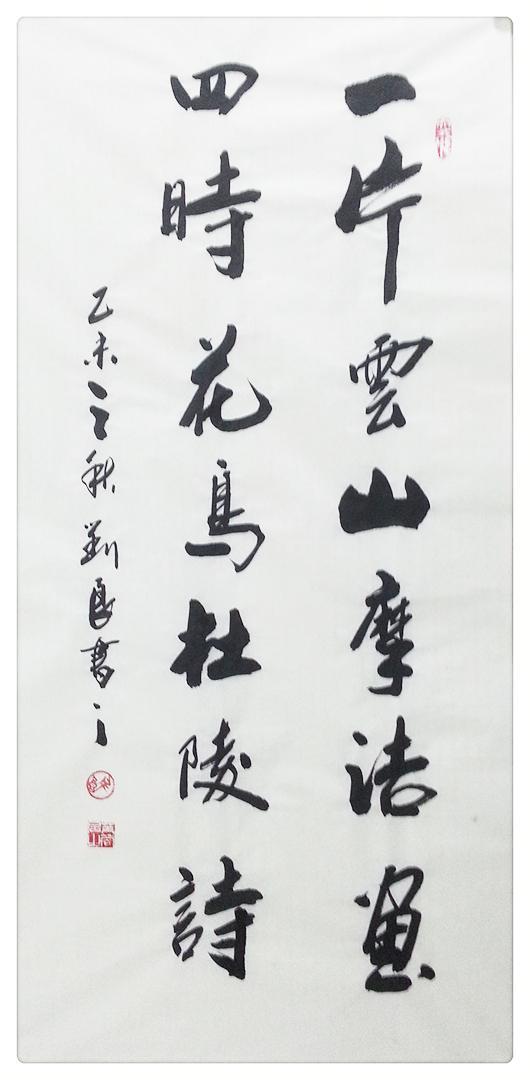 一片雲山摩詰畫
四時花鳥杜陵詩
乙未之秋劉良書之